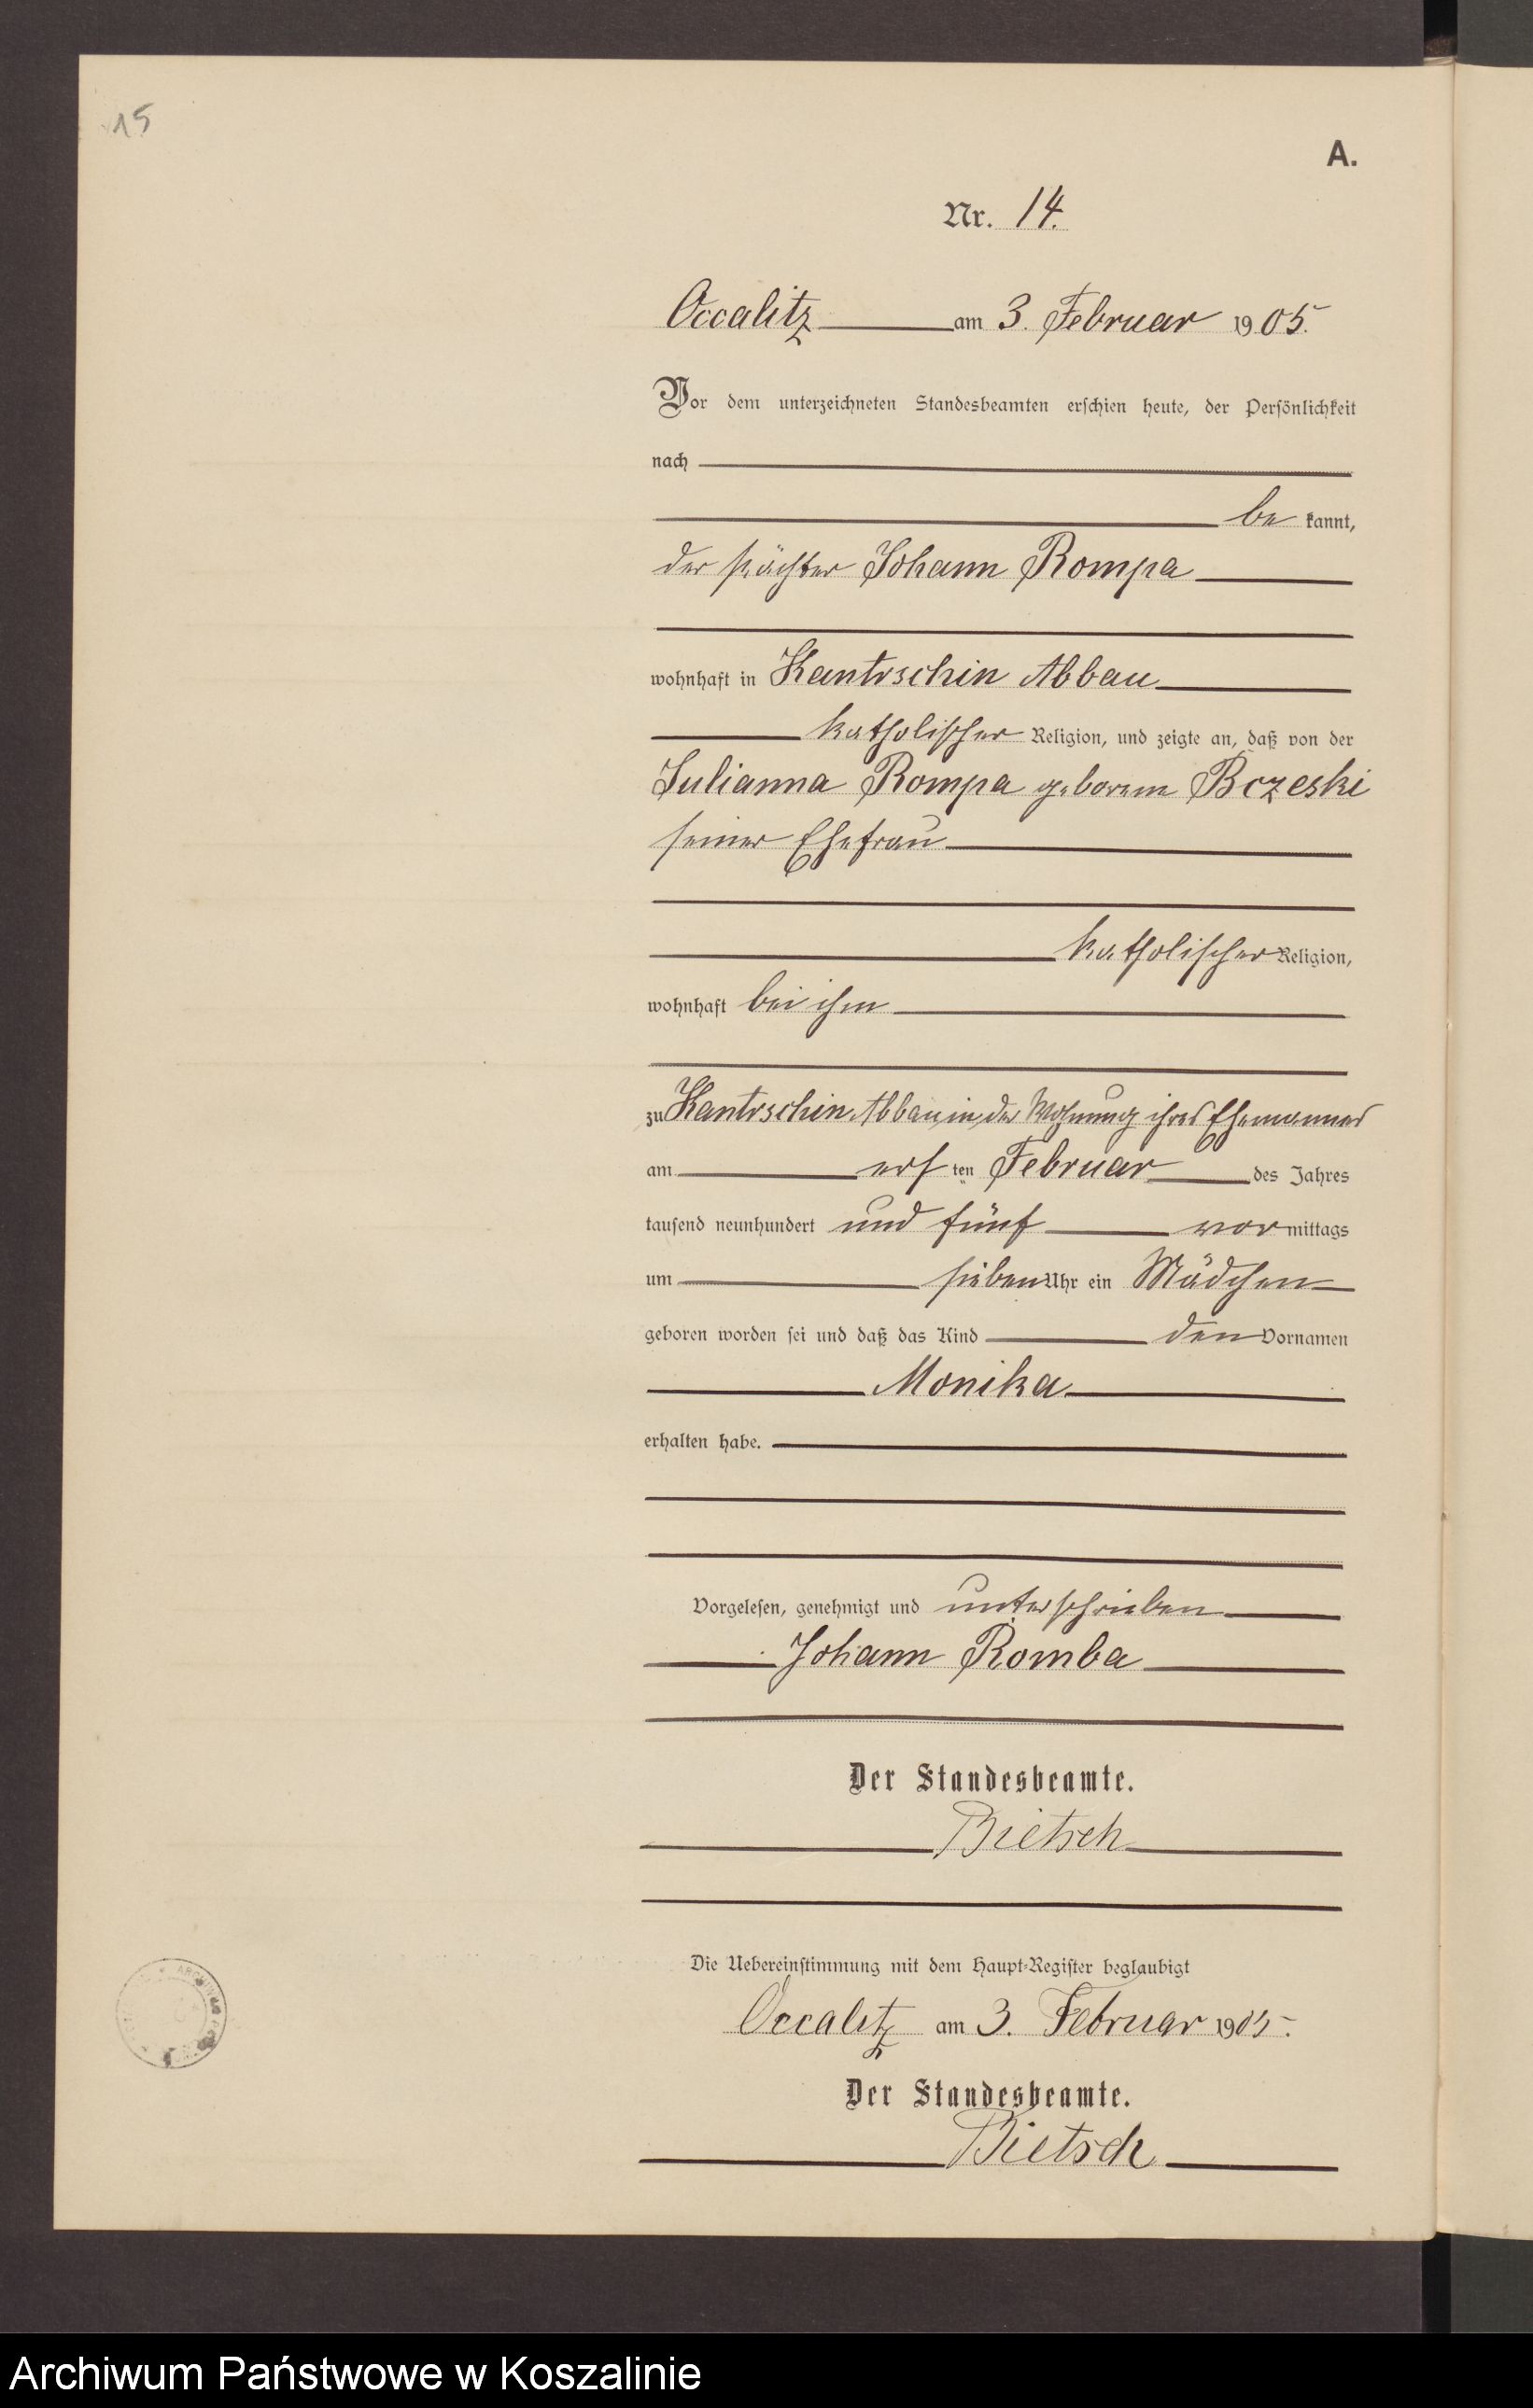 15
A.
Nr. 14.
Occalitz am 3. Februar 1905.
Vor dem unterzeichneten Standesbeamten erschien heute, der Persönlichkeit
nach
be kannt,
der Pächter Johann Rompa
wohnhaft in Kantrschin Abbau
katholischer Religion, und zeigte an, daß von der
Julianna Rompa geborene Rczeski
seiner Ehefrau
katholischer Religion,
wohnhaft bei ihm
zu Kantrschin Abbau, in der Wohnung ihres Ehemannes
am ersten Februar des Jahres
tausend neunhundert und fünf vormittags
um sieben Uhr ein Mädchen
geboren worden sei und daß das Kind den Vornamen
Monika
erhalten habe.
Vorgelesen, genehmigt und unterschrieben
Johann Romba
Der Standesbeamte.
Bietsch
Die Uebereinstimmung mit dem Haupt-Register beglaubigt
Occalitz am 3. Februar 1905.
Der Standesbeamte.
Bietsch
Archiwum Państwowe w Koszalinie